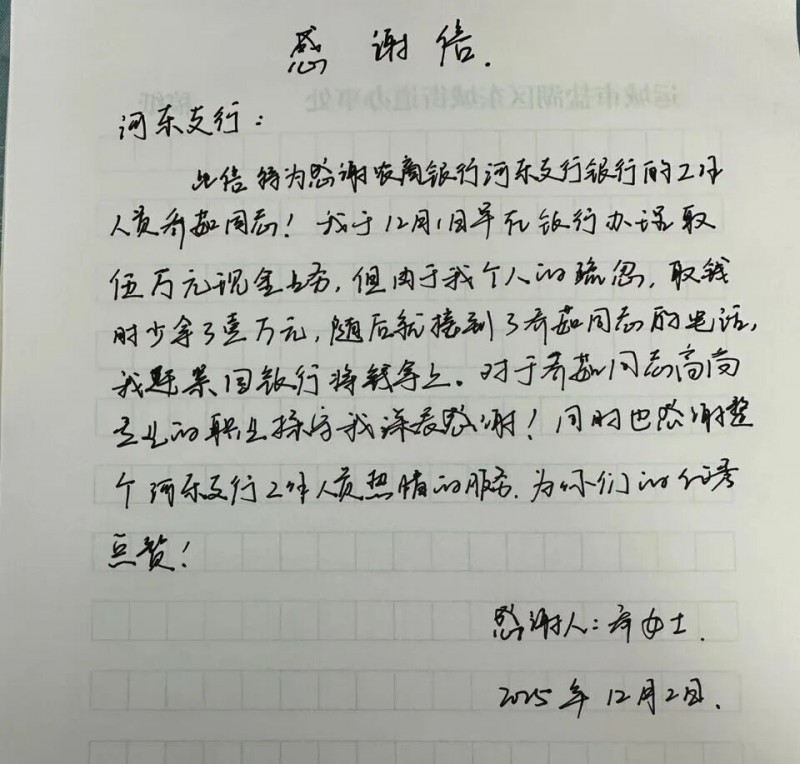 感谢信.
运城市盐湖区东城街道办事处 稿纸
河东支行:
此信特为感谢农商银行河东支行银行的工作
人员乔茹同志!我于12月1日早在银行办理取
伍万元现金业务,但由于我个人的疏忽,取钱
时少拿了壹万元,随后就接到了乔茹同志的电话,
我返回银行将钱拿上。对于乔茹同志高尚
专业的职业操守我深表感谢!同时也感谢整
个河东支行工作人员热情的服务.为你们的优秀
点赞!
感谢人:乔女士.
2025年12月2日.